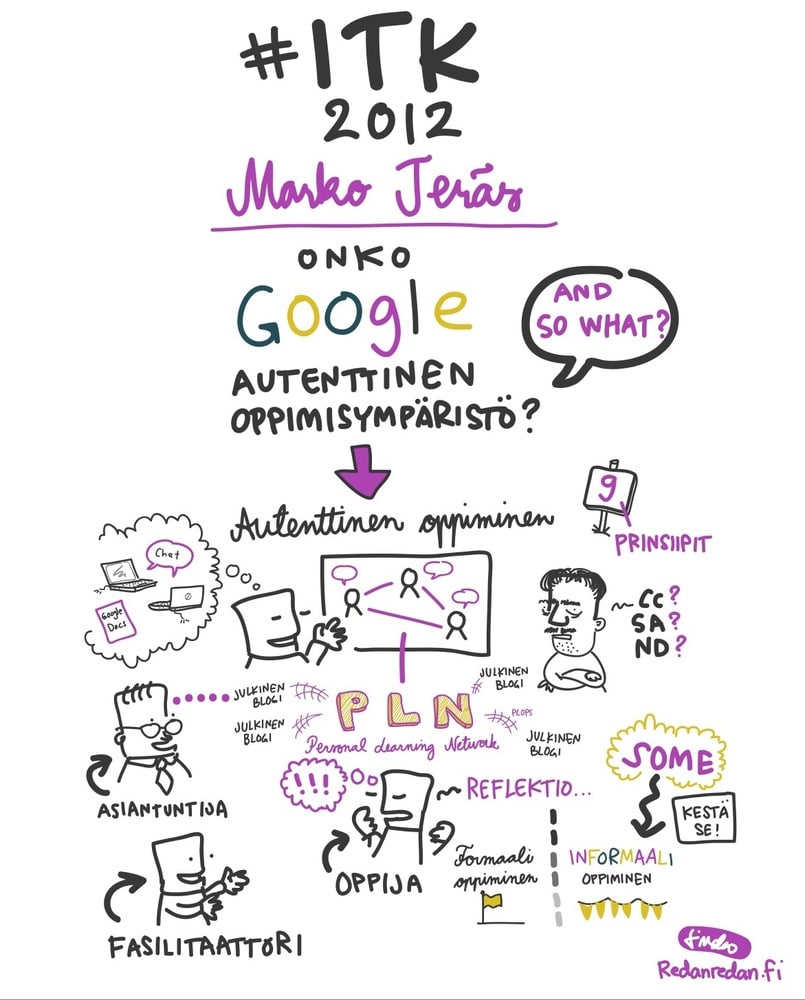 #ITK
2012
Marko Teräs
ONKO
Google
AUTENTTINEN
OPPIMISYMPÄRISTÖ?
AND
SO WHAT?
Autenttinen oppiminen
9
PRINSIIPIT
Chat
Google
Docs
CC?
SA?
ND?
JULKINEN
BLOGI
JULKINEN
BLOGI
JULKINEN
BLOGI
PLN
PLOPS
Personal Learning Network
JULKINEN
BLOGI
ASIANTUNTIJA
!!!
REFLEKTIO...
OPPIJA
SOME
KESTÄ
SE!
Formaali
oppiminen
INFORMAALI
OPPIMINEN
FASILITAATTORI
Redanredan.fi